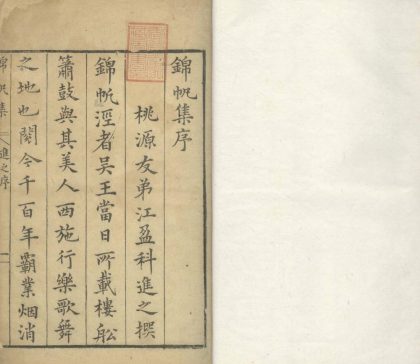 錦帆集序
桃源友弟江盈科進之撰
錦帆涇者吳王當日所載樓舩
簫鼓與其美人西施行樂歌舞
之地也閱今千百年霸業烟消
錦帆集 進之序 一